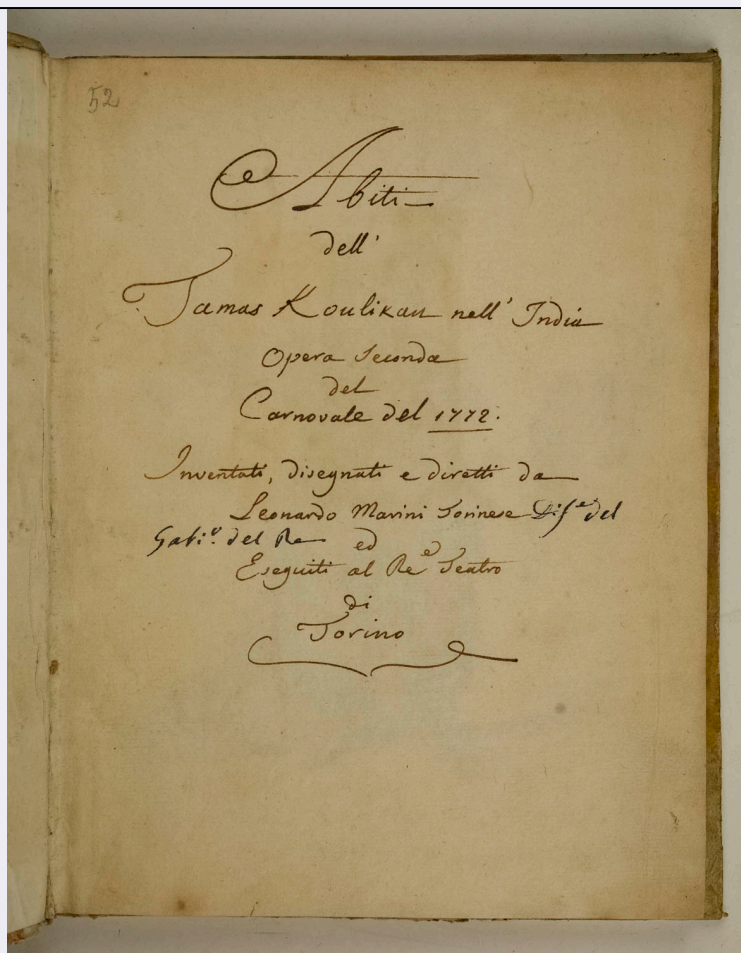 52
Abiti
dell'
Tamas Koulikan nell' India
Opera Seconda
del
Carnovale del 1772.
Inventati, disegnati e diretti da
Leonardo Marini Torinese Dis.e del
Gabi.o del Re
ed
Eseguiti al Re.e Teatro
di
Torino